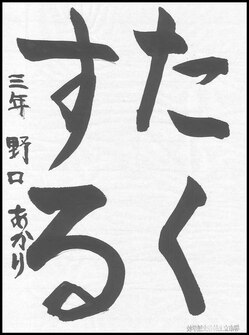 たく
する
三年 野口 あかり